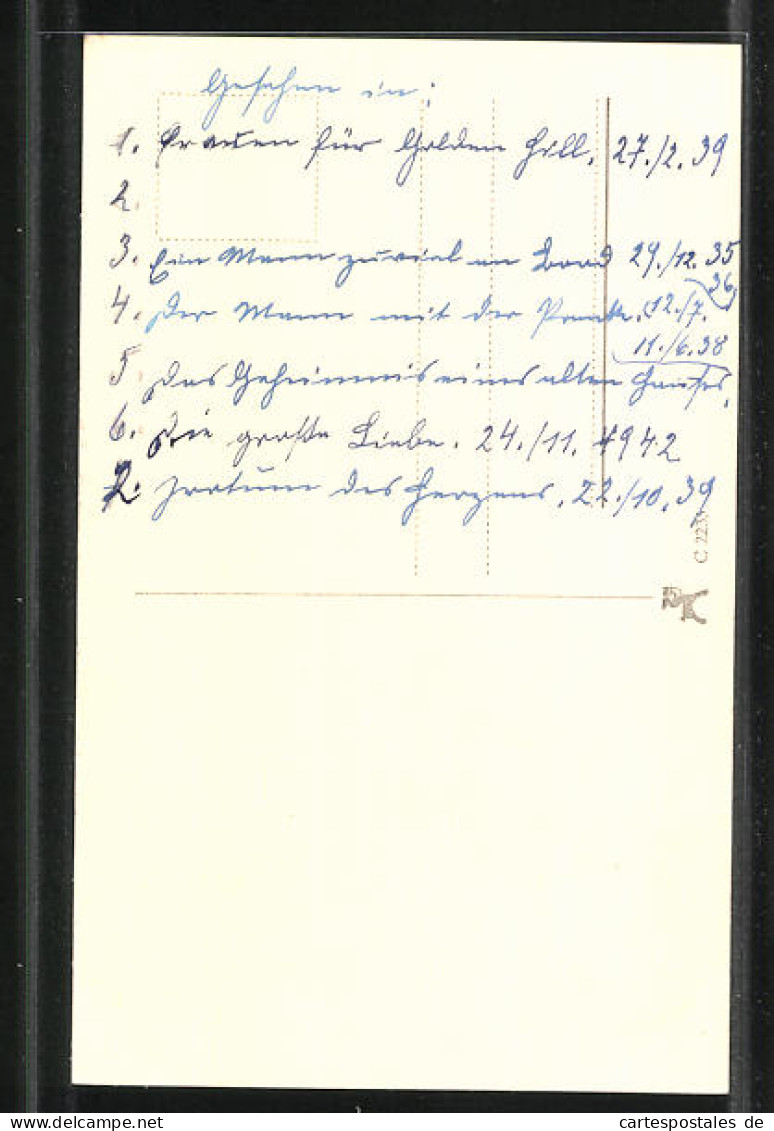 Gesehen in:
1. Frauen für Golden Hill. 27./2. 39
2.
3. Ein Mann zuviel an Bord 29./12. 35
36
4. Der Mann mit der Pranke. (12./7.
11./6. 38
5 Das Geheimnis eines alten Hauses.
6. Die große Liebe. 24./11. 1942
2. Irrtum des Herzens. 22./10. 39
C 2237
cartespostales de